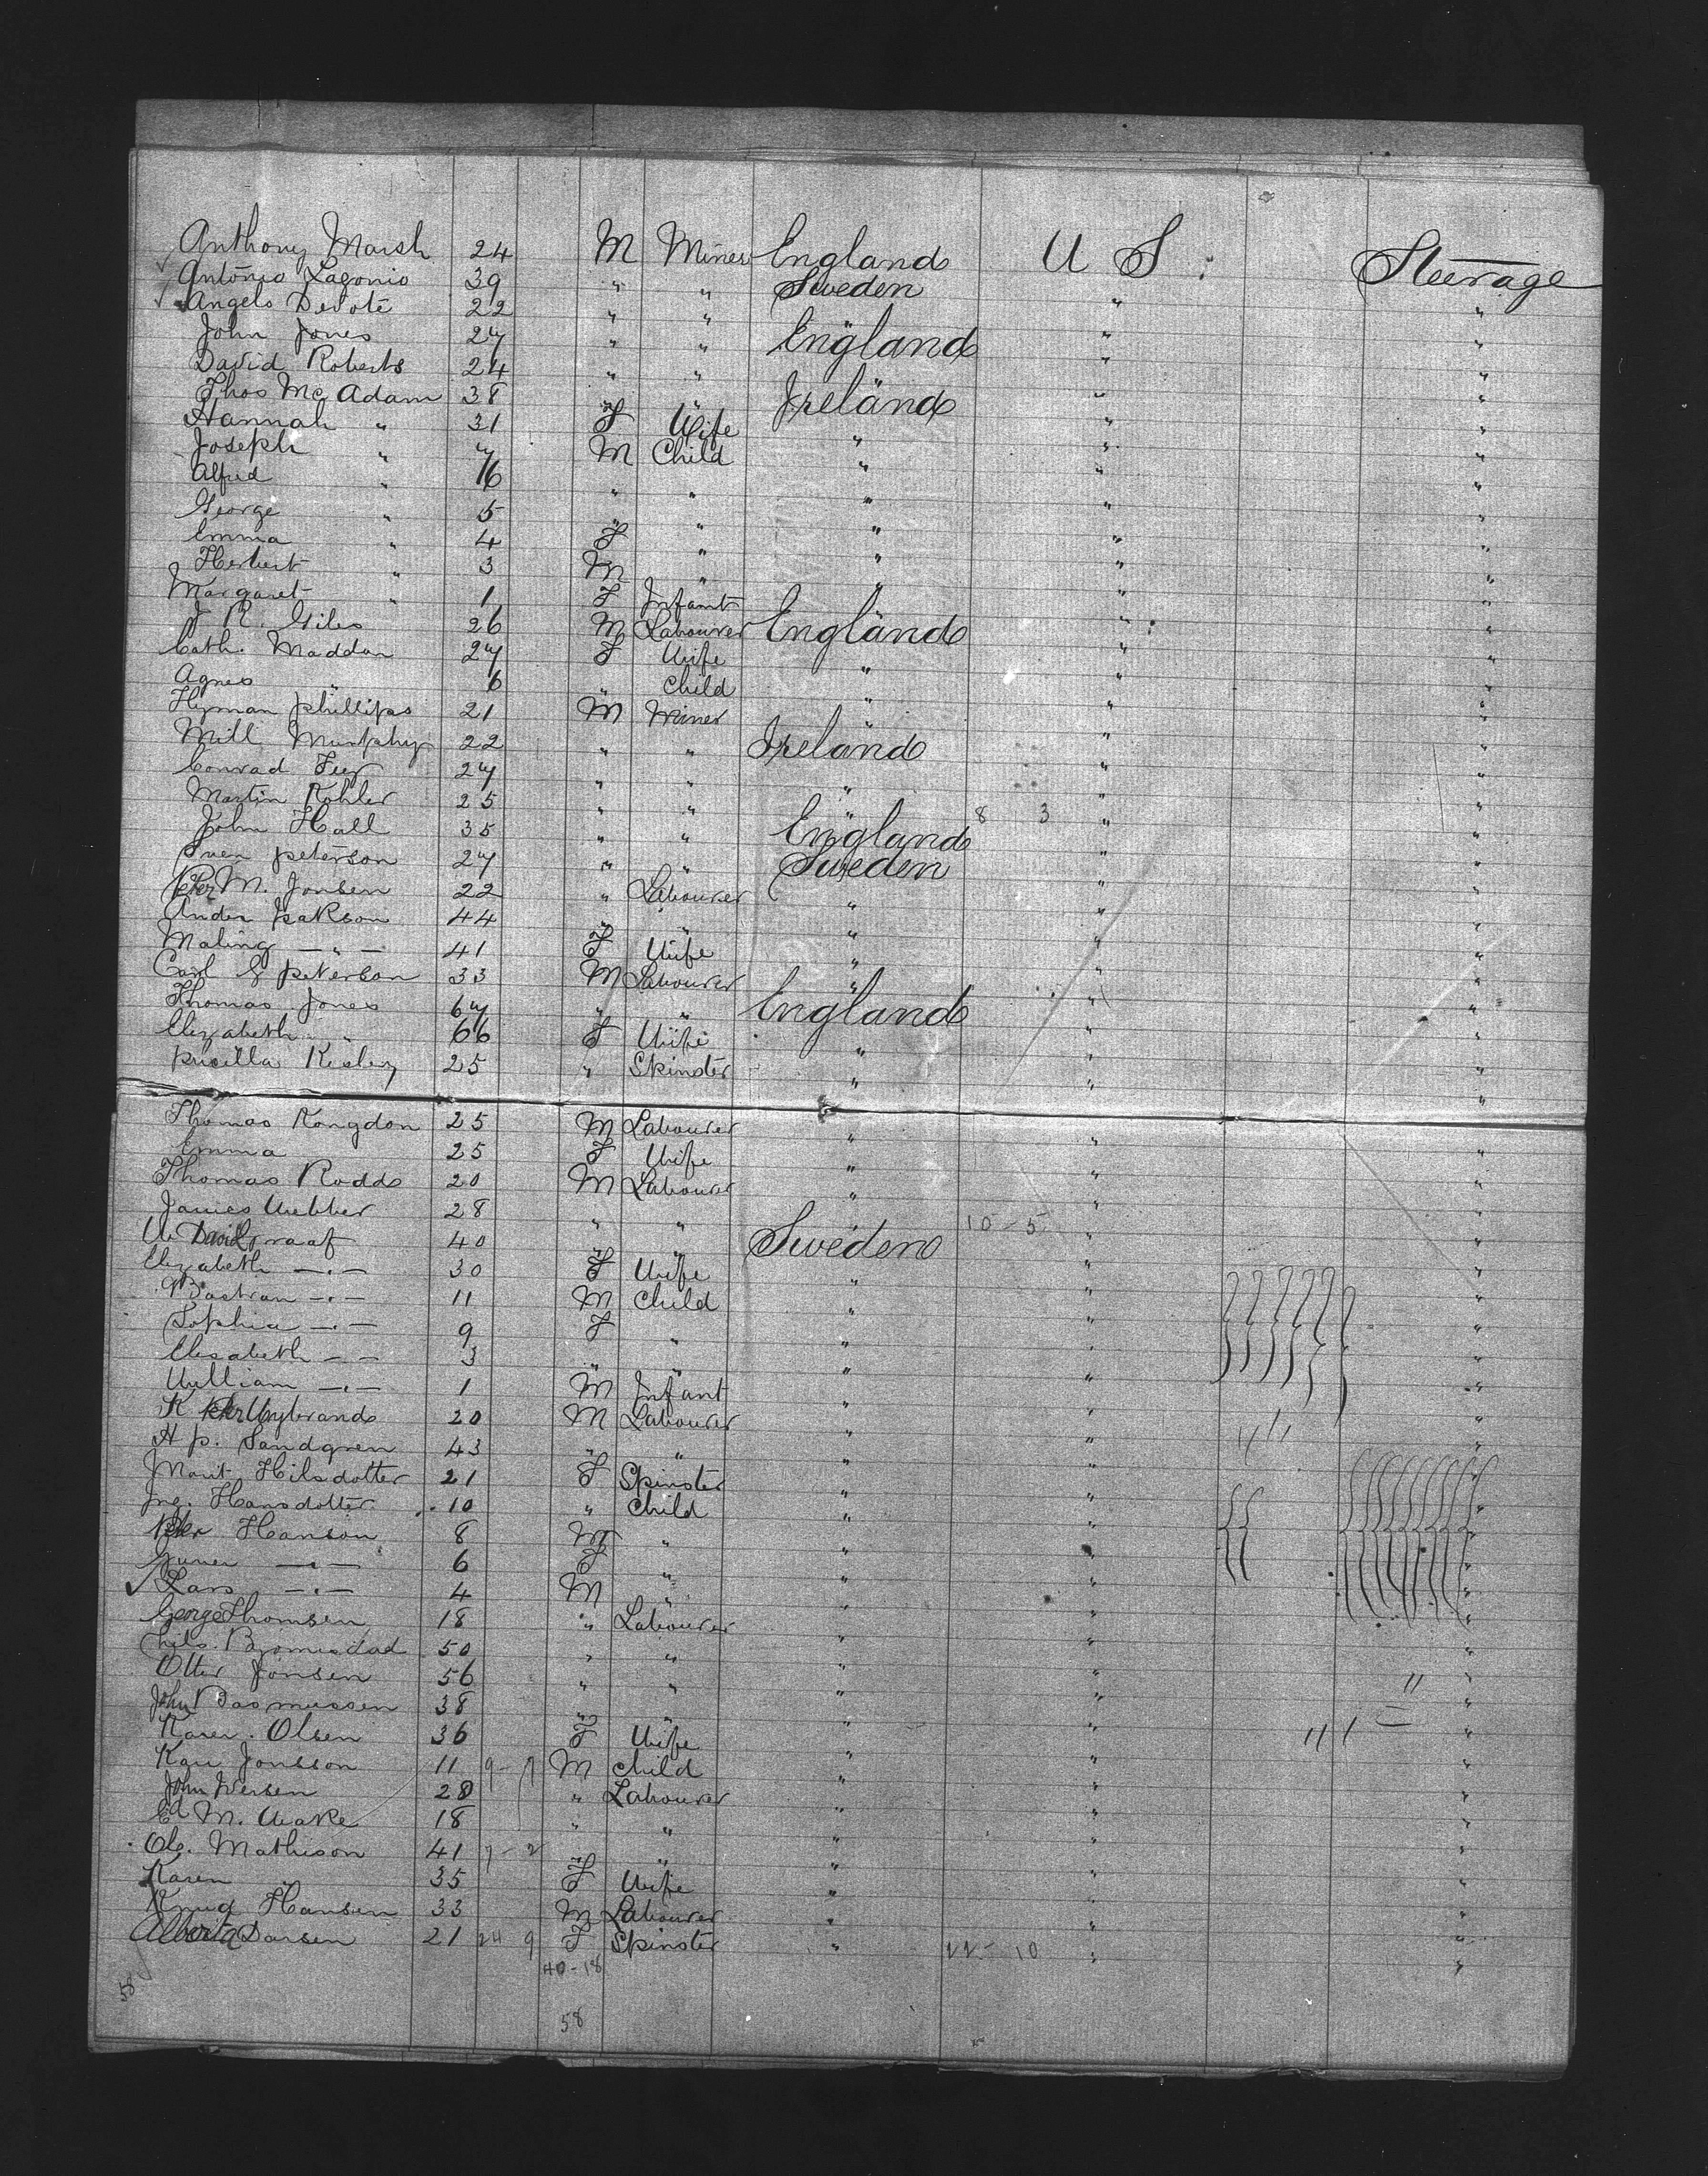 Anthony Marsh 24 M Miner England U S. Steerage
Antonio Lagonio 39 " " Sweden " "
Angelo Devote 22 " " " " "
John Jones 27 " " England " "
David Roberts 24 " " " " "
Thos Mc Adam 38 " " Ireland " "
Hannah " 31 F Wife " " "
Joseph " 7 M Child " " "
Alfred " 6 " " " " "
George " 5 " " " " "
Emma " 4 F " " " "
Herbert " 3 M " " " "
Margaret " 1 F Infant " " "
J R. Giles 26 M Labourer England " "
Cath. Maddan 27 F Wife " " "
Agnes " 6 " Child " " "
Hyman Phillips 21 M Miner " " "
Mill Murphy 22 " " Ireland " "
Conrad 27 " " " " "
Martin Kohler 25 " " " 8 3 " "
John Hall 35 " " England " "
Sven Peterson 27 " " Sweden " "
Peter M. Jonsen 22 " Labourer " " "
Ander Isakson 44 " " " " "
Maling — " — 41 F Wife " " "
Carl G Peterson 33 M Labourer " " "
Thomas Jones 67 " " England " "
Elizabeth " 66 F Wife " " "
Pricilla Kesley 25 " Spinster " " "
Thomas Kongdon 25 M Labourer " " "
Emma 25 F Wife " " "
Thomas Rodds 20 M Labourer " " "
James Webber 28 " " " 10 - 5 " "
W David graaf 40 " " Sweden " "
Elizabeth — " — 30 F Wife " " "
Bastian — " — 11 M Child " " "
Sophia — " — 9 F " " " "
Elisabeth — — 3 " " " " "
William — " — 1 M Infant " " "
K Wybrands 20 M Labourer " " "
H P. Sandgren 43 " " " " "
Marit Hilsdotter 21 F Spinster " " "
Ing. Hansdotter 10 " Child " " "
Peter Hanson 8 M " " " "
Guner — " — 6 F " " " "
Lars — " — 4 M " " " "
George Thomsen 18 " Labourer " " "
50 " " " " "
Otter Jonsen 56 " " " " "
John Rasmussen 38 " " " " "
Karen Olsen 36 F Wife " " "
Kari Jonsson 11 9 - 7 M Child " " "
John Iversen 28 " Labourer " " "
Ed M. Wake 18 " " " " "
Ole. Mathison 41 7 - 2 " " " " "
Karen 35 F Wife " " "
Knud Hansen 33 M Labourer " " "
Alberta Larsen 21 24 9 F Spinster " 22 - 10 " "
40 - 18
58
58